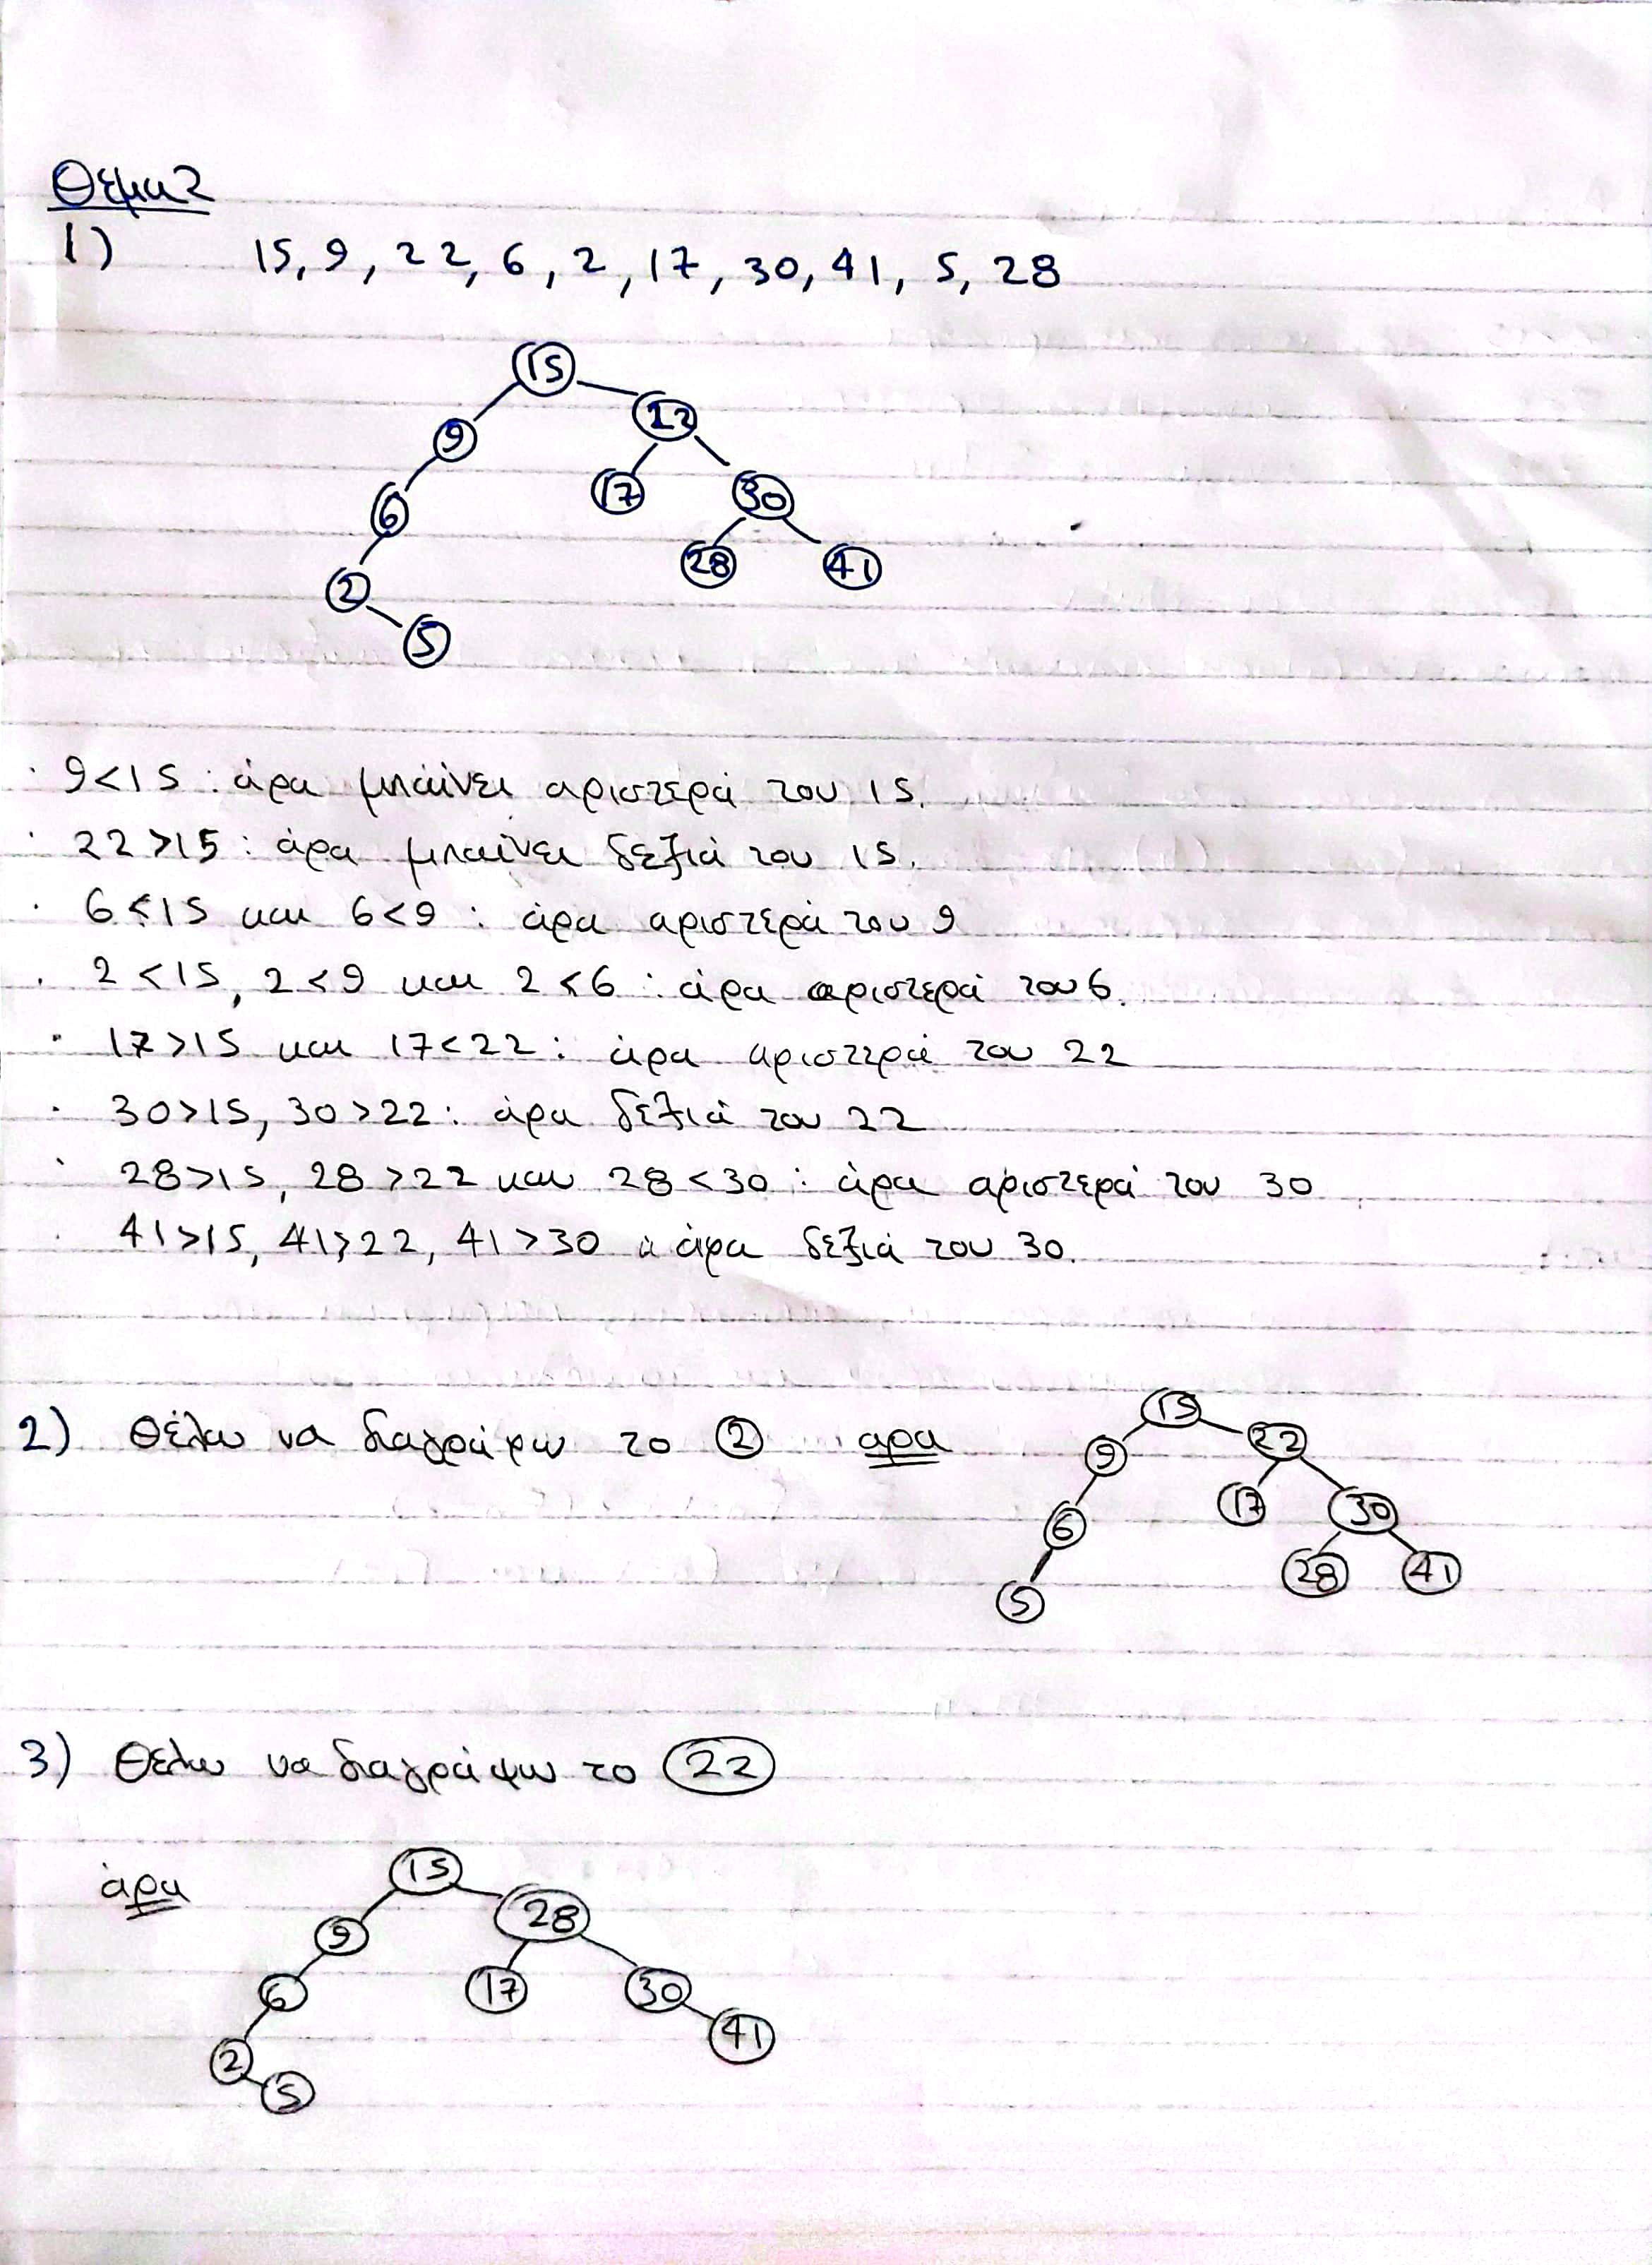 Θέμα 2
1) 15, 9, 22, 6, 2, 17, 30, 41, 5, 28
15
22
9
17 30
6
28 41
2
5
· 9<15 : άρα μπαίνει αριστερά του 15.
· 22>15 : άρα μπαίνει δεξιά του 15.
· 6<15 και 6<9 : άρα αριστερά του 9
· 2<15, 2<9 και 2<6 : άρα αριστερά του 6.
· 17>15 και 17<22 : άρα αριστερά του 22
· 30>15, 30>22 : άρα δεξιά του 22
· 28>15, 28>22 και 28<30 : άρα αριστερά του 30
· 41>15, 41>22, 41>30 : άρα δεξιά του 30.
2) Θέλω να διαγράψω το 2 αρα
15
9 22
17 30
6
28 41
5
3) Θέλω να διαγράψω το 22
άρα
15
28
9
17 30
6
41
2
5